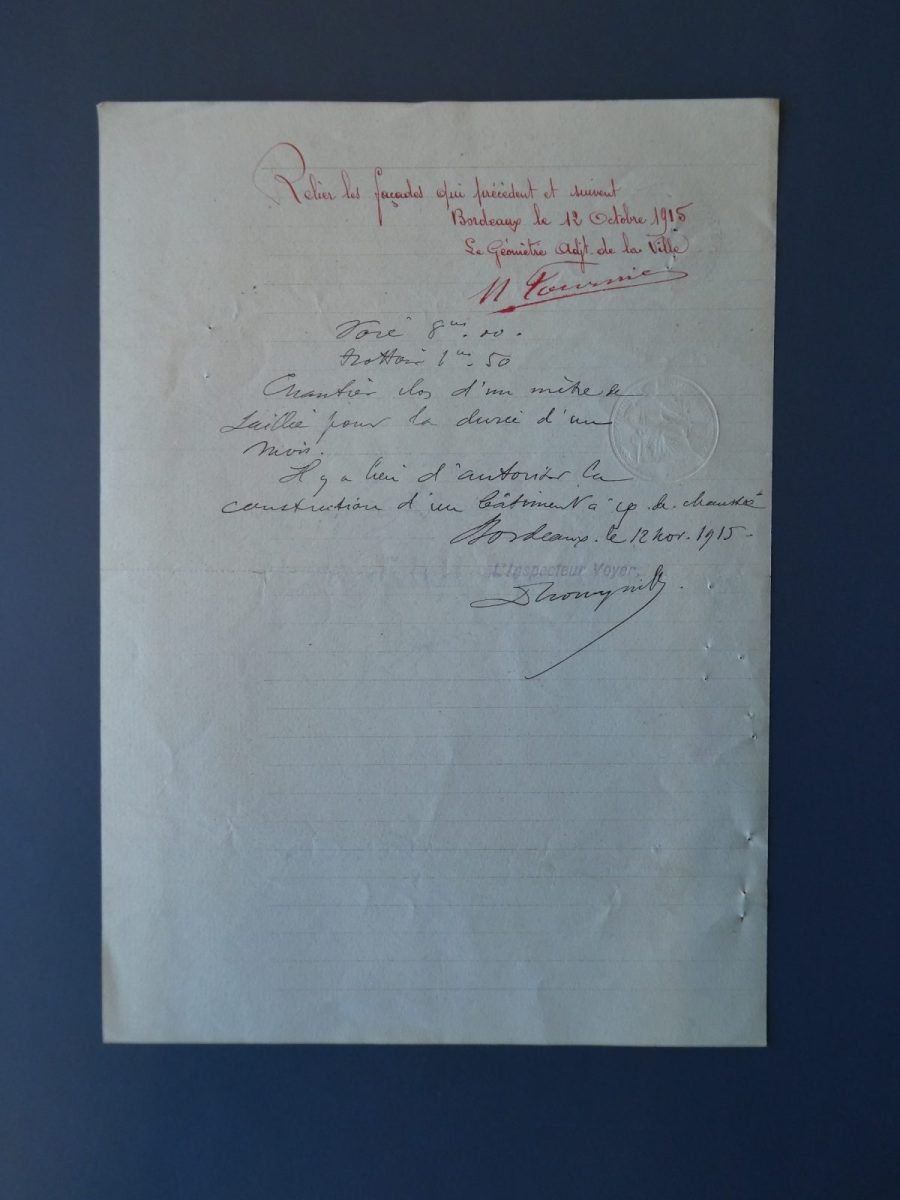 Relier les façades qui précèdent et suivent
Bordeaux le 12 Octobre 1915
Le Géomètre Adjt. de la Ville
Voie 8ms.00.
trottoir 1m.50
Chantier clos d'un mètre de
saillie pour la durée d'un
mois.
Il y a lieu d'autoriser la
construction d'un bâtiment à de chaussée
Bordeaux. le 12 nov. 1915.
L'Inspecteur Voyer,